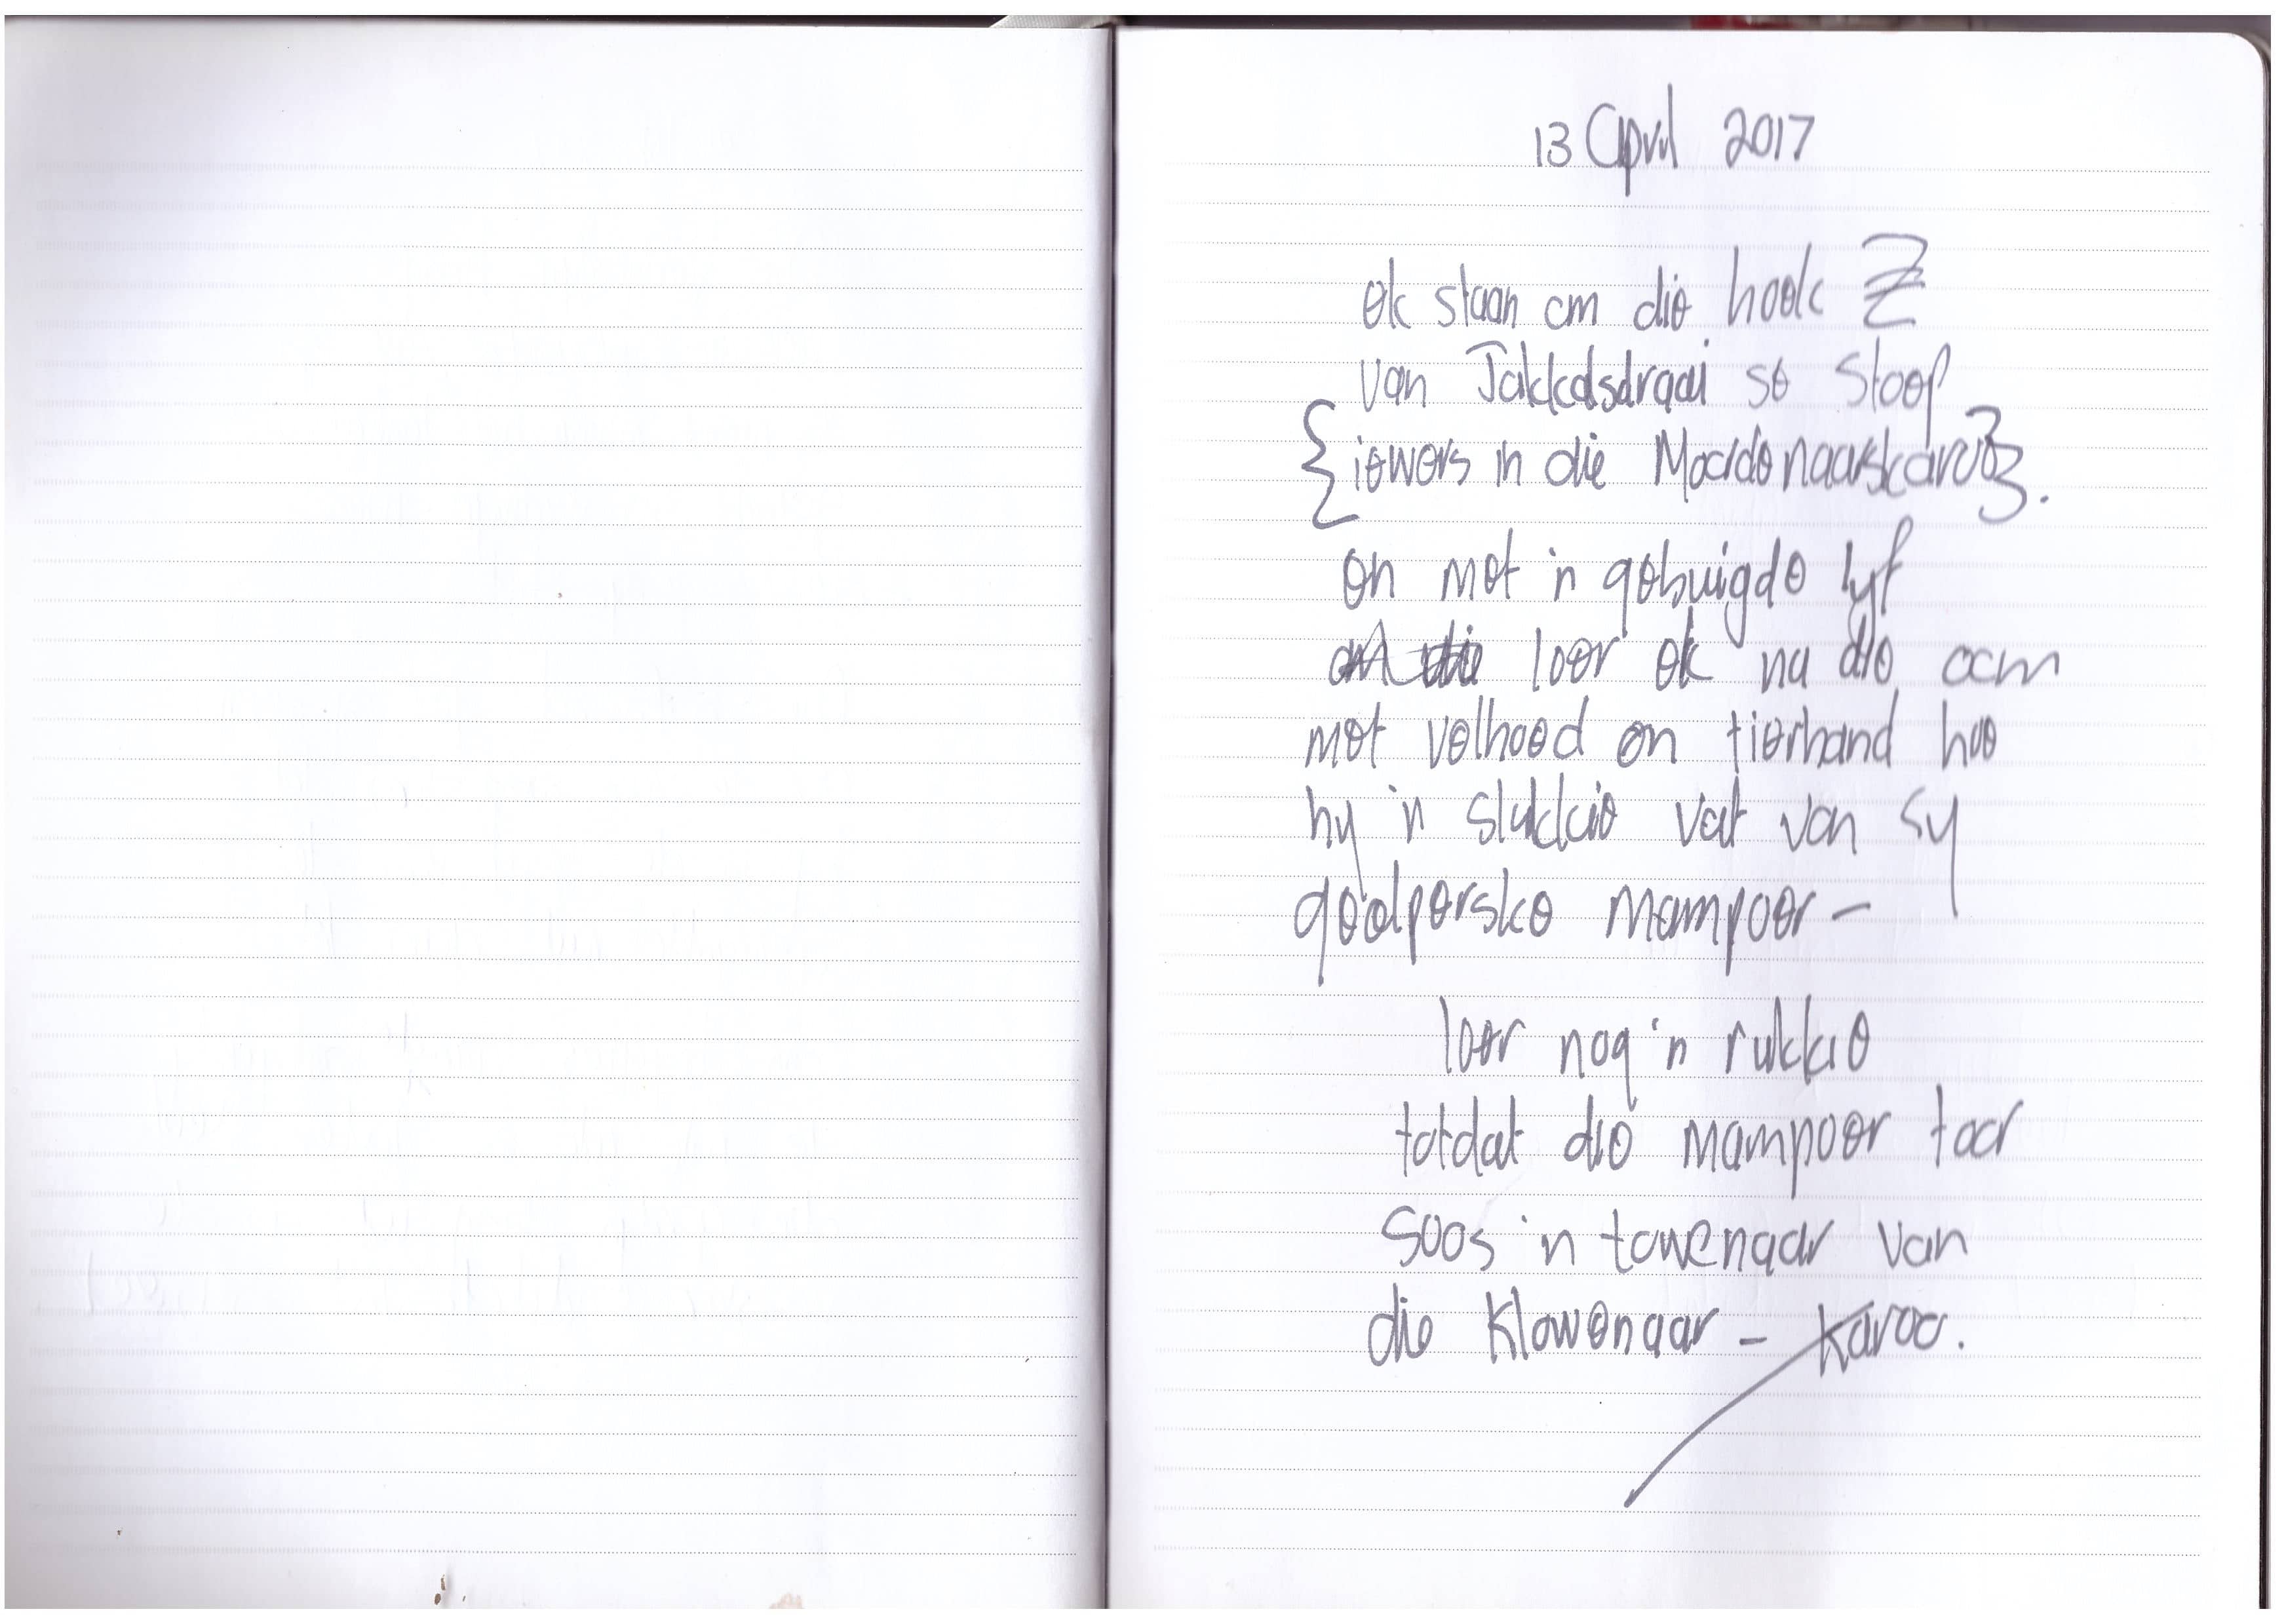 13 April 2017
ek staan om die hoek
van Jakkalsdraai se stoep
{iewers in die Moordenaarskaroo}.
en met 'n gebuigde lyf
loer ek na die oom
met velhoed en tierhand hoe
hy 'n slukkie vat van sy
geelperske mampoer –
loer nog 'n rukkie
totdat die mampoer toor
soos 'n towenaar van
die Klowenaar – Karoo.